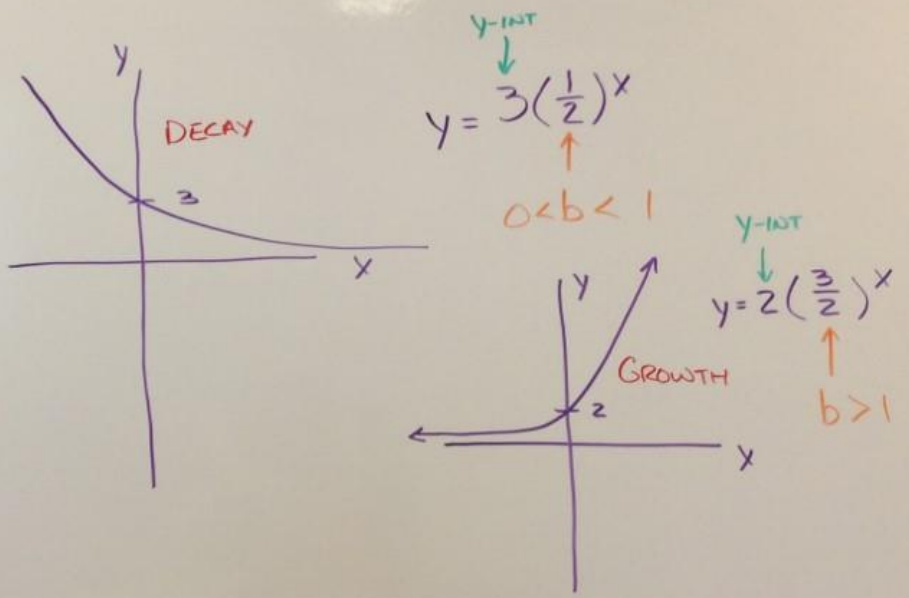 y
DECAY
3
x
y-INT
y = 3(1/2)^x
0<b<1
y
GROWTH
2
x
y-INT
y=2(3/2)^x
b>1